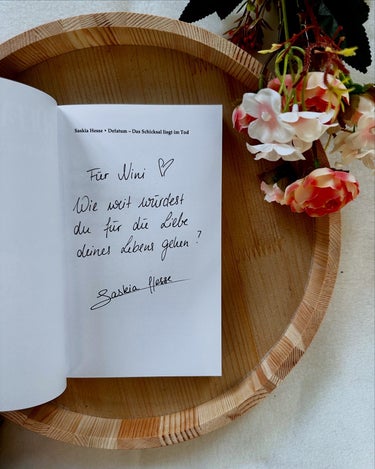 Saskia Hesse • Defatum – Das Schicksal liegt im Tod
Für Nini ♡
Wie weit würdest
du für die Liebe
deines Lebens gehen?
Saskia Hesse